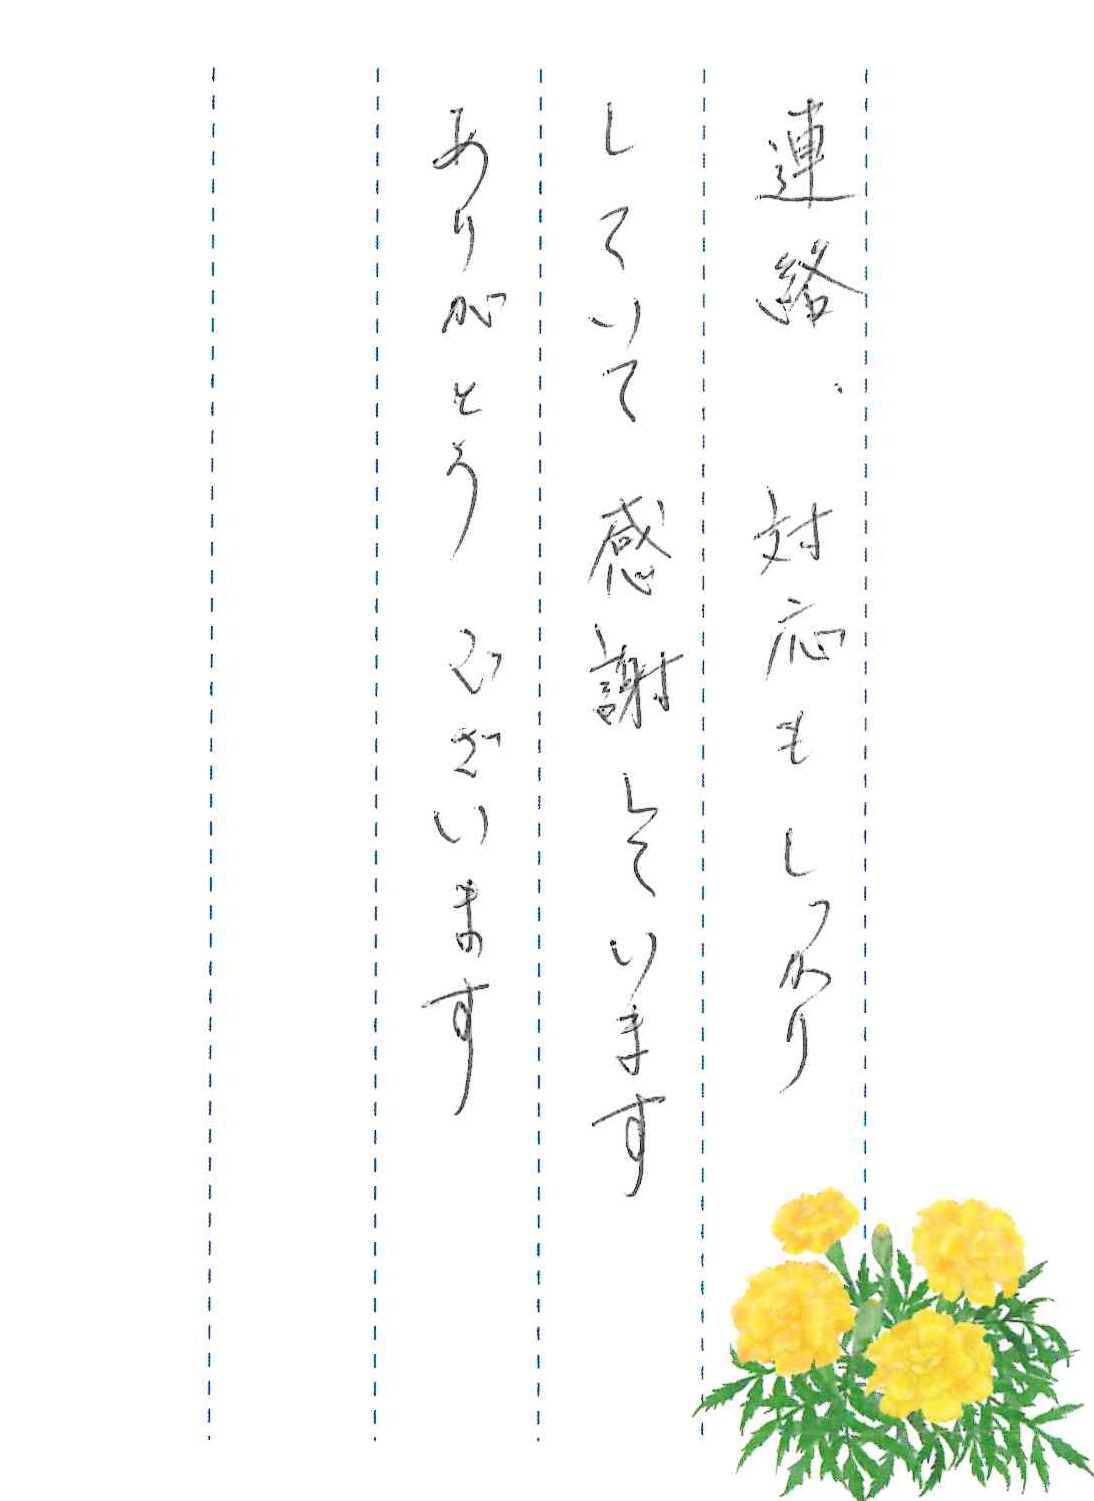 連絡、対応もしっかり
していて感謝しています
ありがとうございます